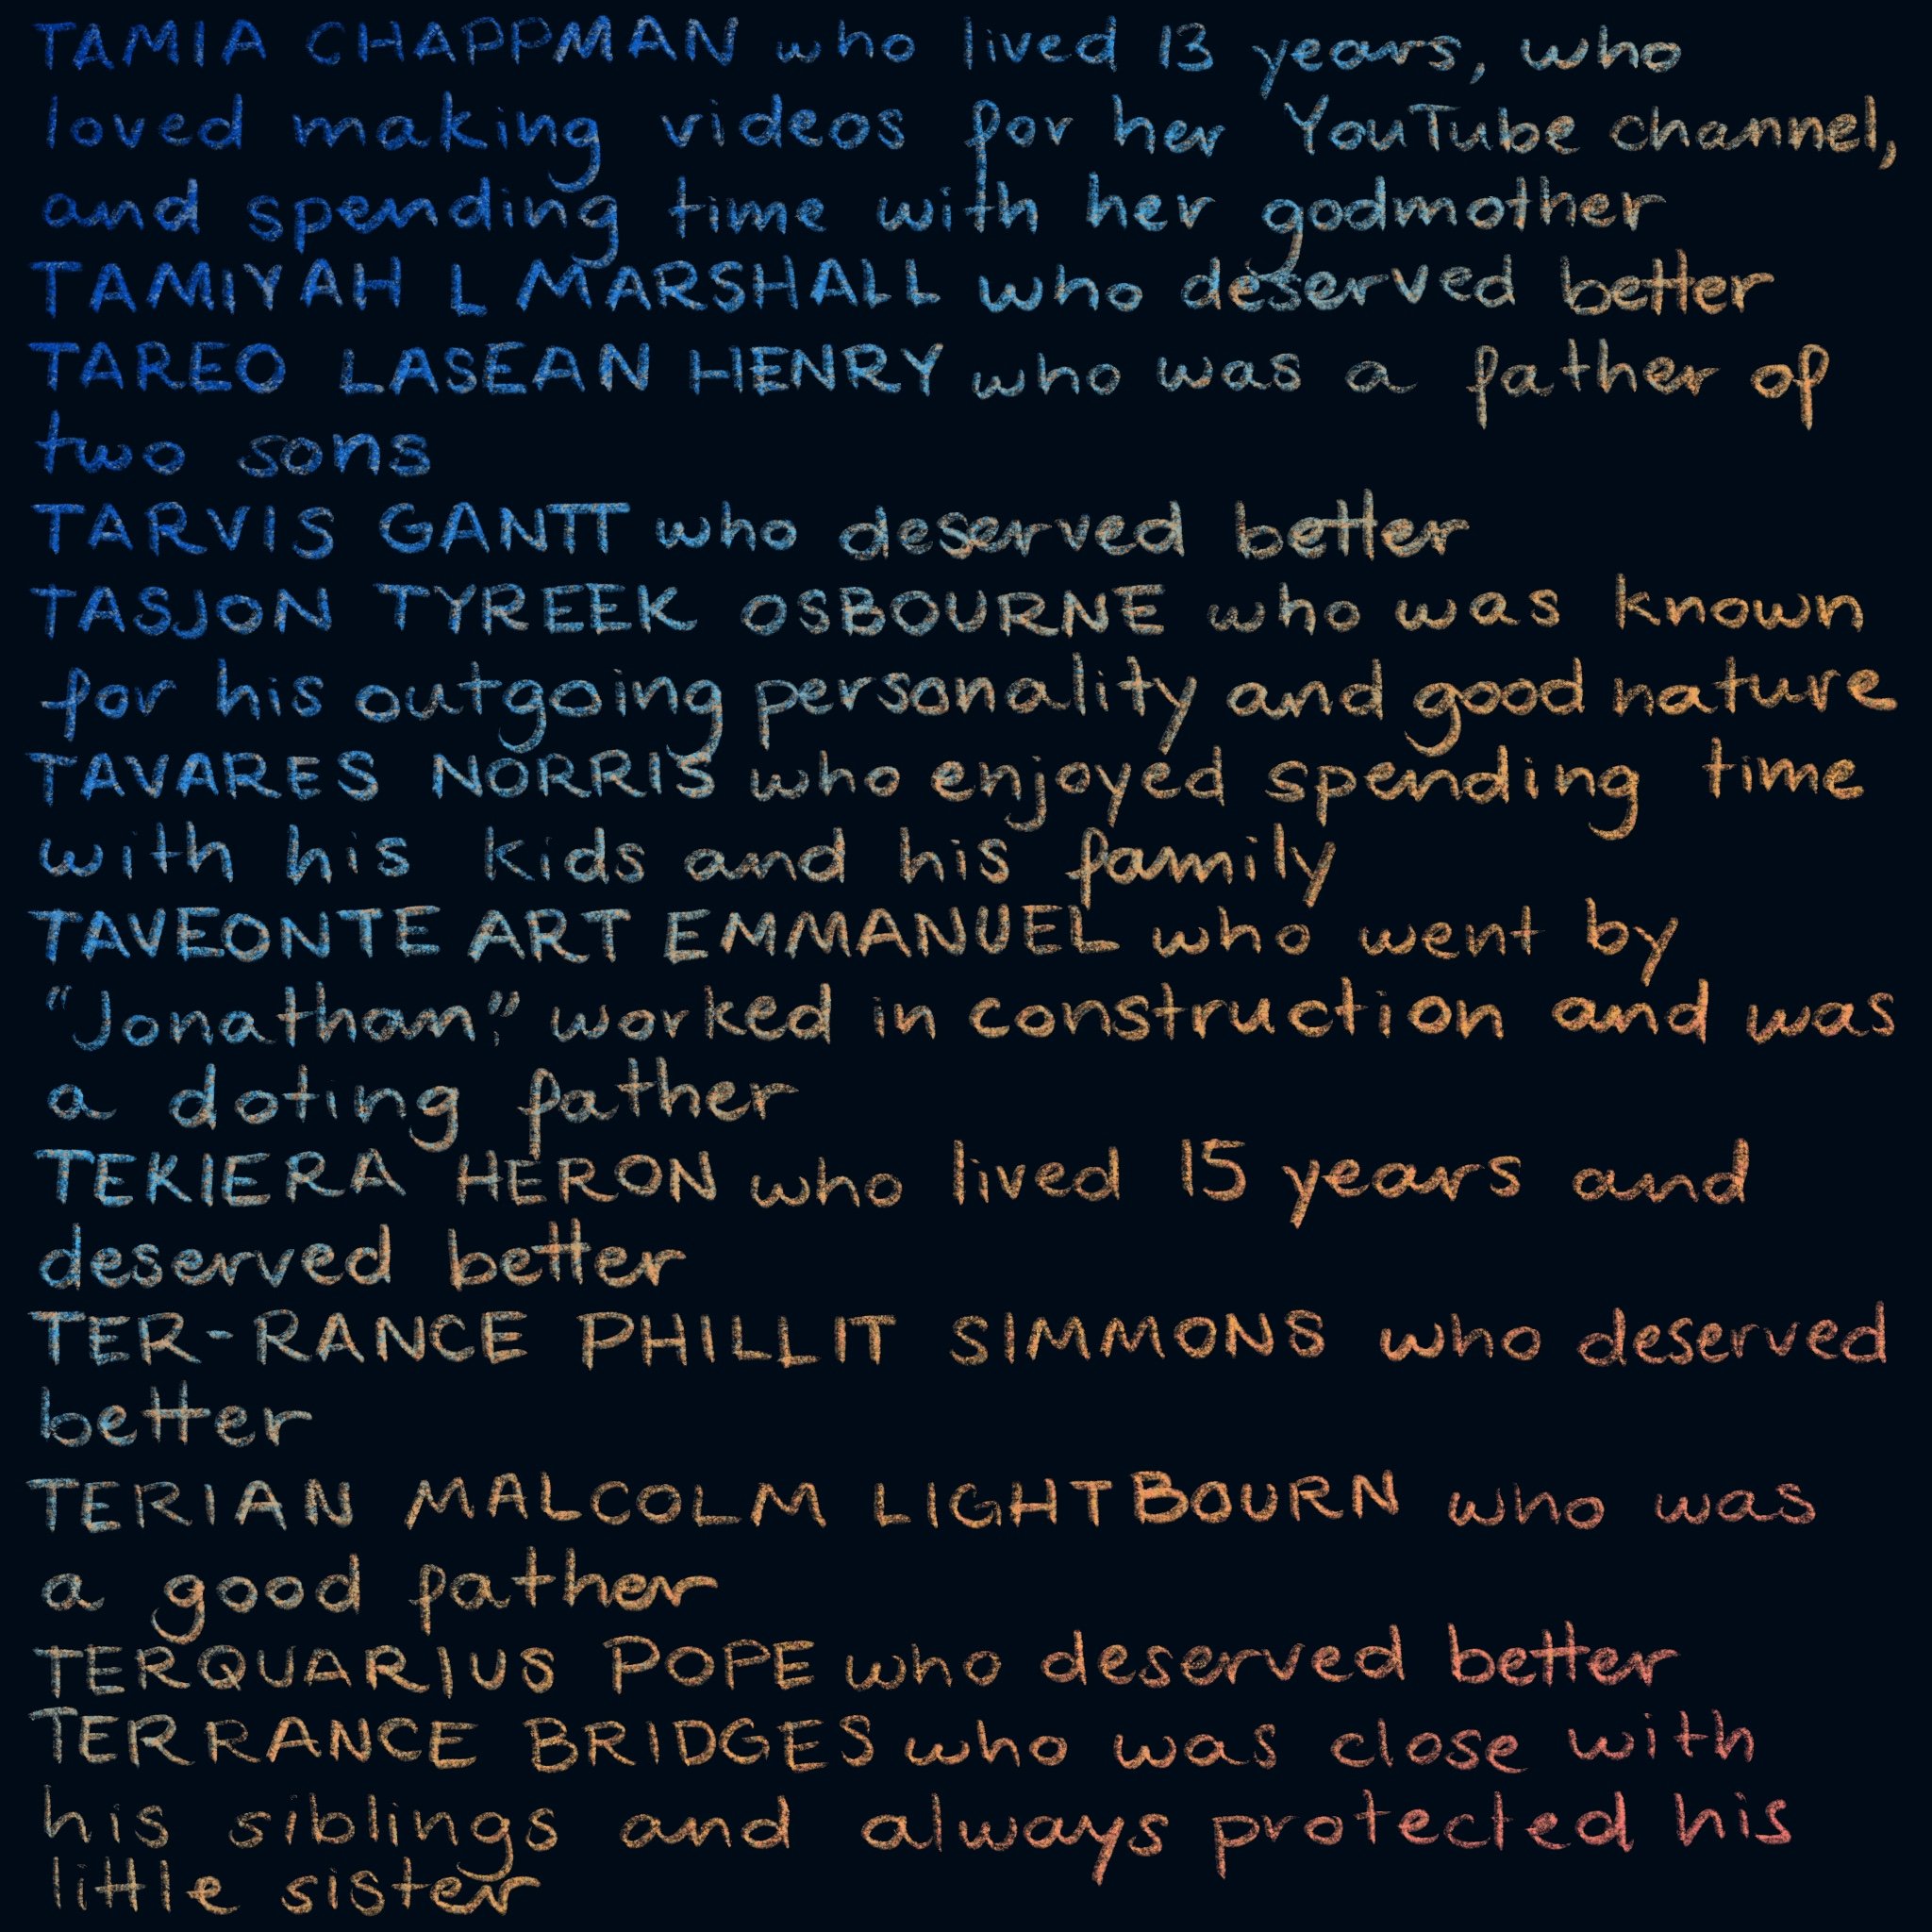 TAMIA CHAPPMAN who lived 13 years, who
loved making videos for her YouTube channel,
and spending time with her godmother
TAMIYAH L MARSHALL who deserved better
TAREO LASEAN HENRY who was a father of
two sons
TARVIS GANTT who deserved better
TASJON TYREEK OSBOURNE who was known
for his outgoing personality and good nature
TAVARES NORRIS who enjoyed spending time
with his kids and his family
TAVEONTE ART EMMANUEL who went by
"Jonathan," worked in construction and was
a doting father
TEKIERA HERON who lived 15 years and
deserved better
TER-RANCE PHILLIT SIMMONS who deserved
better
TERIAN MALCOLM LIGHTBOURN who was
a good father
TERQUARIUS POPE who deserved better
TERRANCE BRIDGES who was close with
his siblings and always protected his
little sister